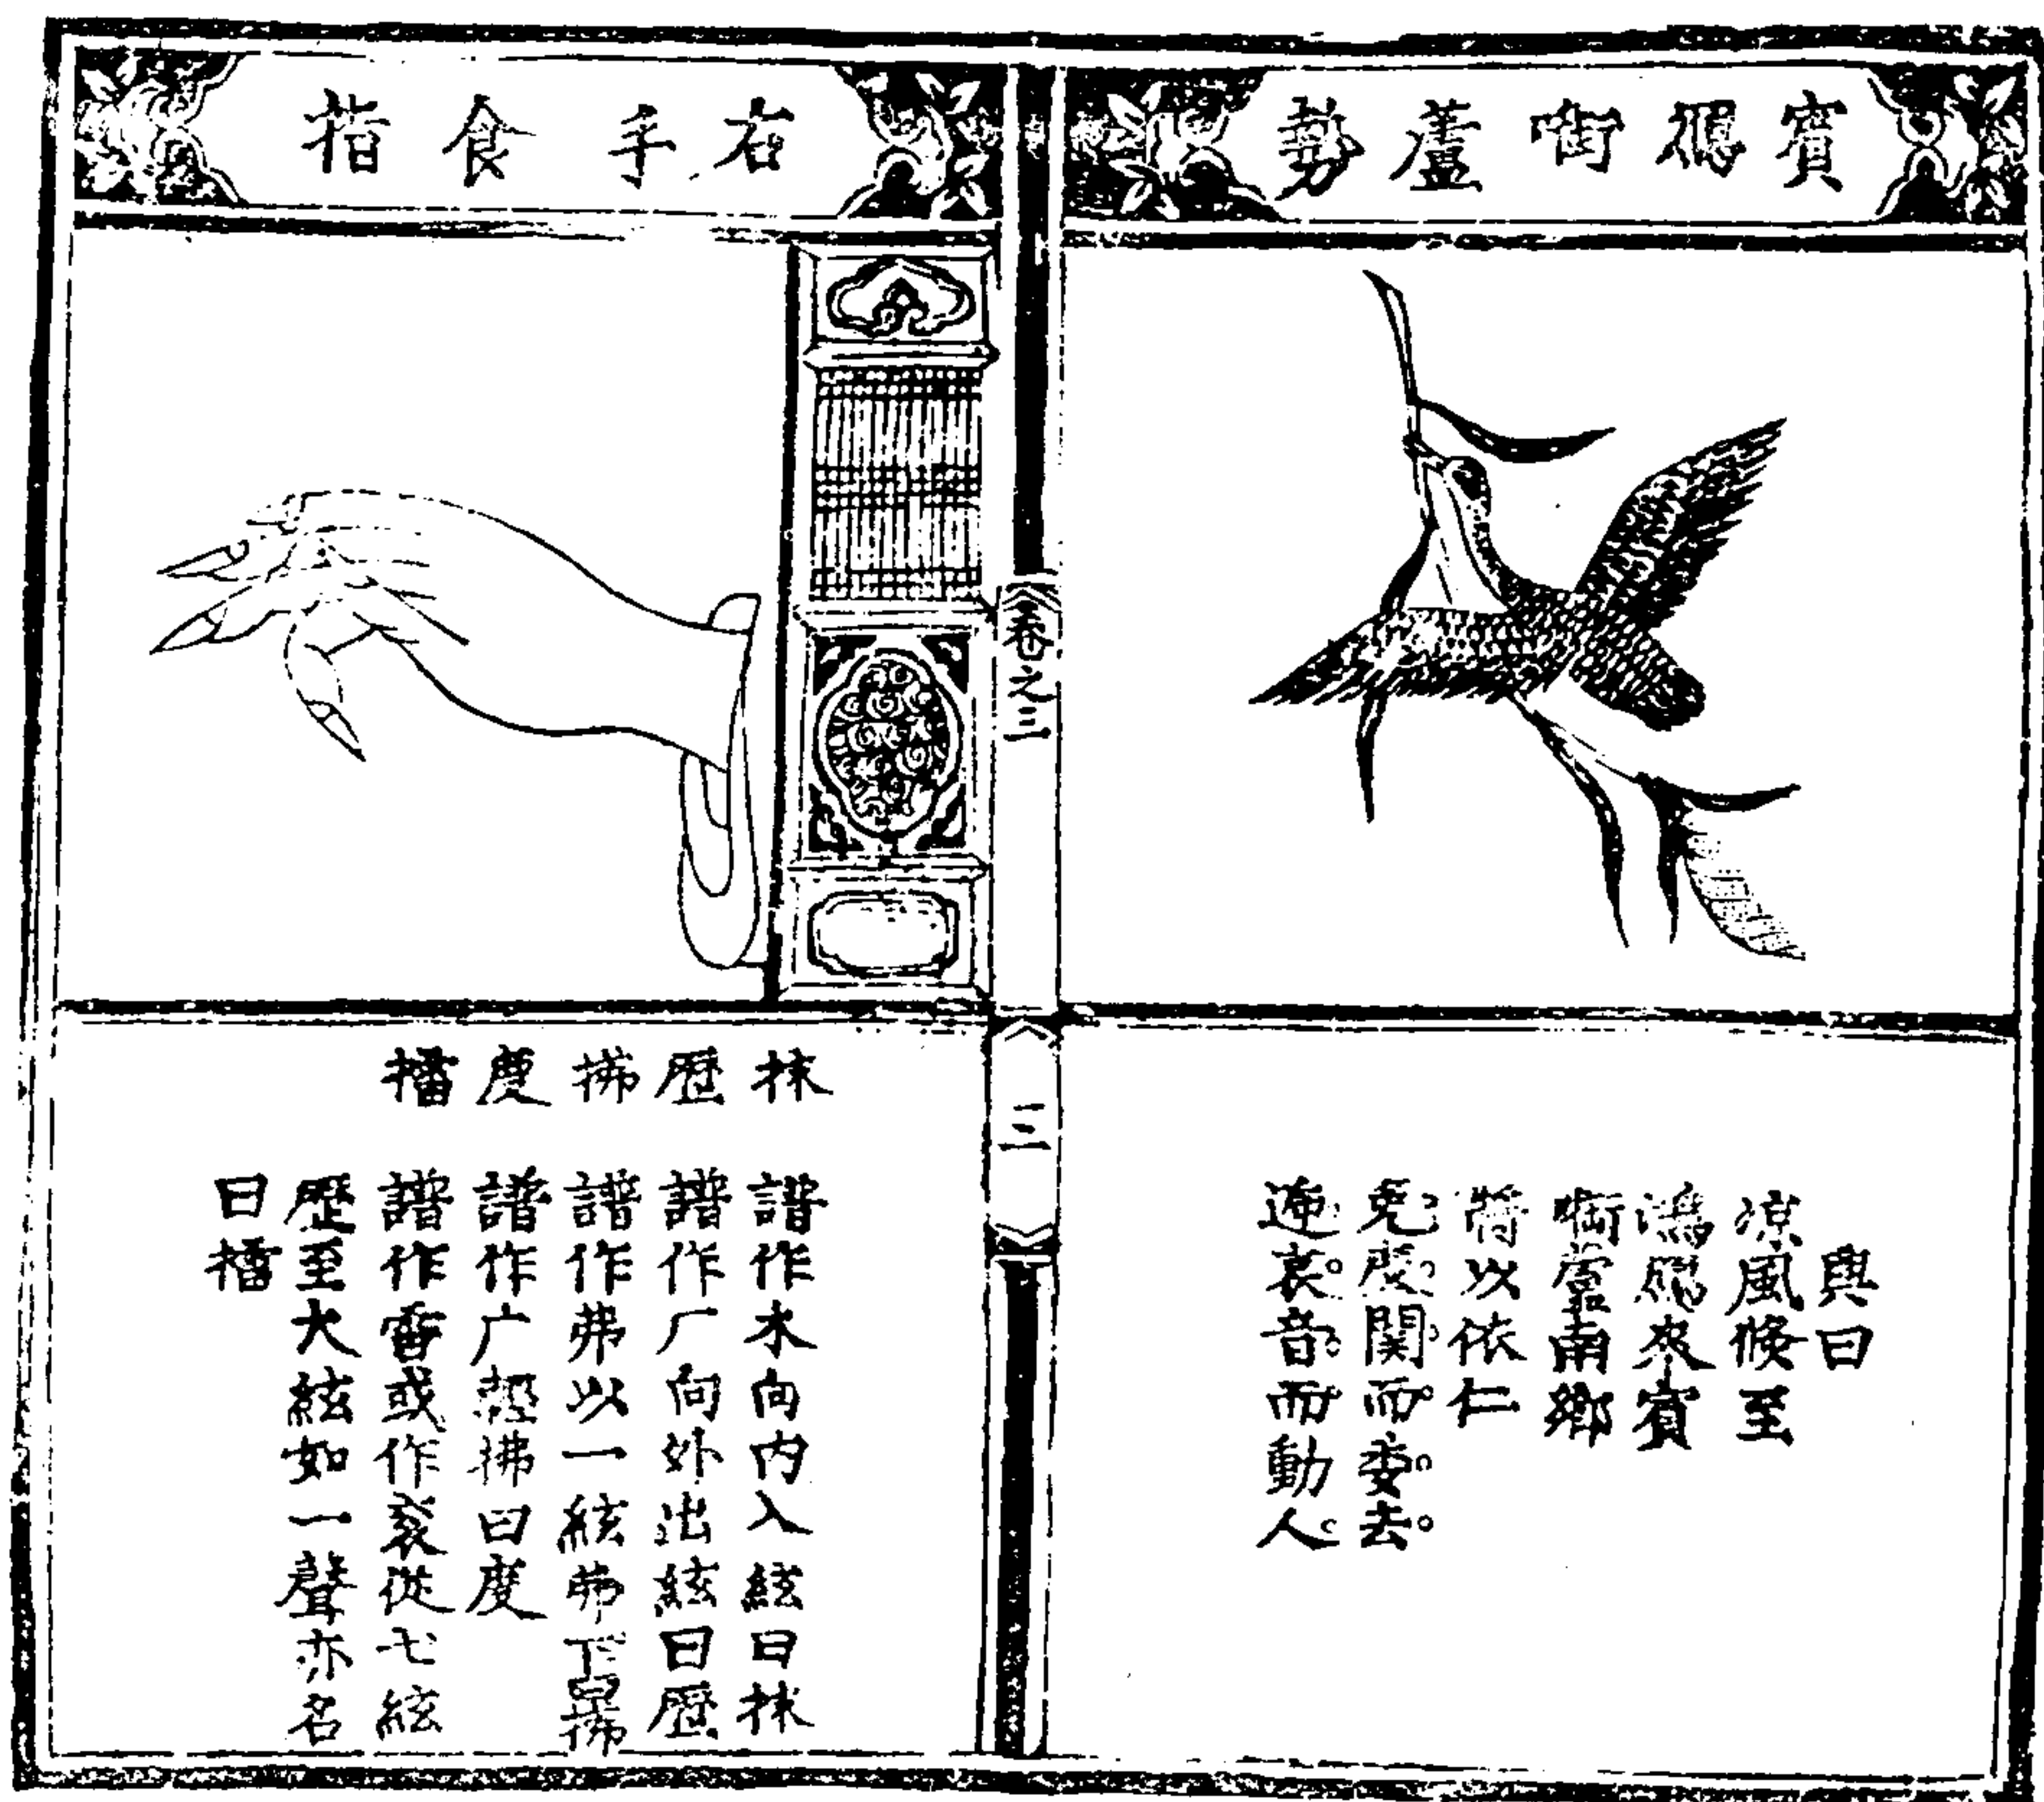 賓鴈啣蘆勢
興曰
凉風倏至
鴻鴈來賓
啣蘆南鄉
將以依仁
免度關而委去
遞哀音而動人
卷之三
三
右手食指
抹 譜作木向内入絃曰抹
歷 譜作厂向外出絃曰歷
拂 譜作弗以一絃弗下曰拂
度 譜作广輕拂曰度
擂 譜作雷或作衮從七絃
歷至大絃如一聲亦名
曰擂